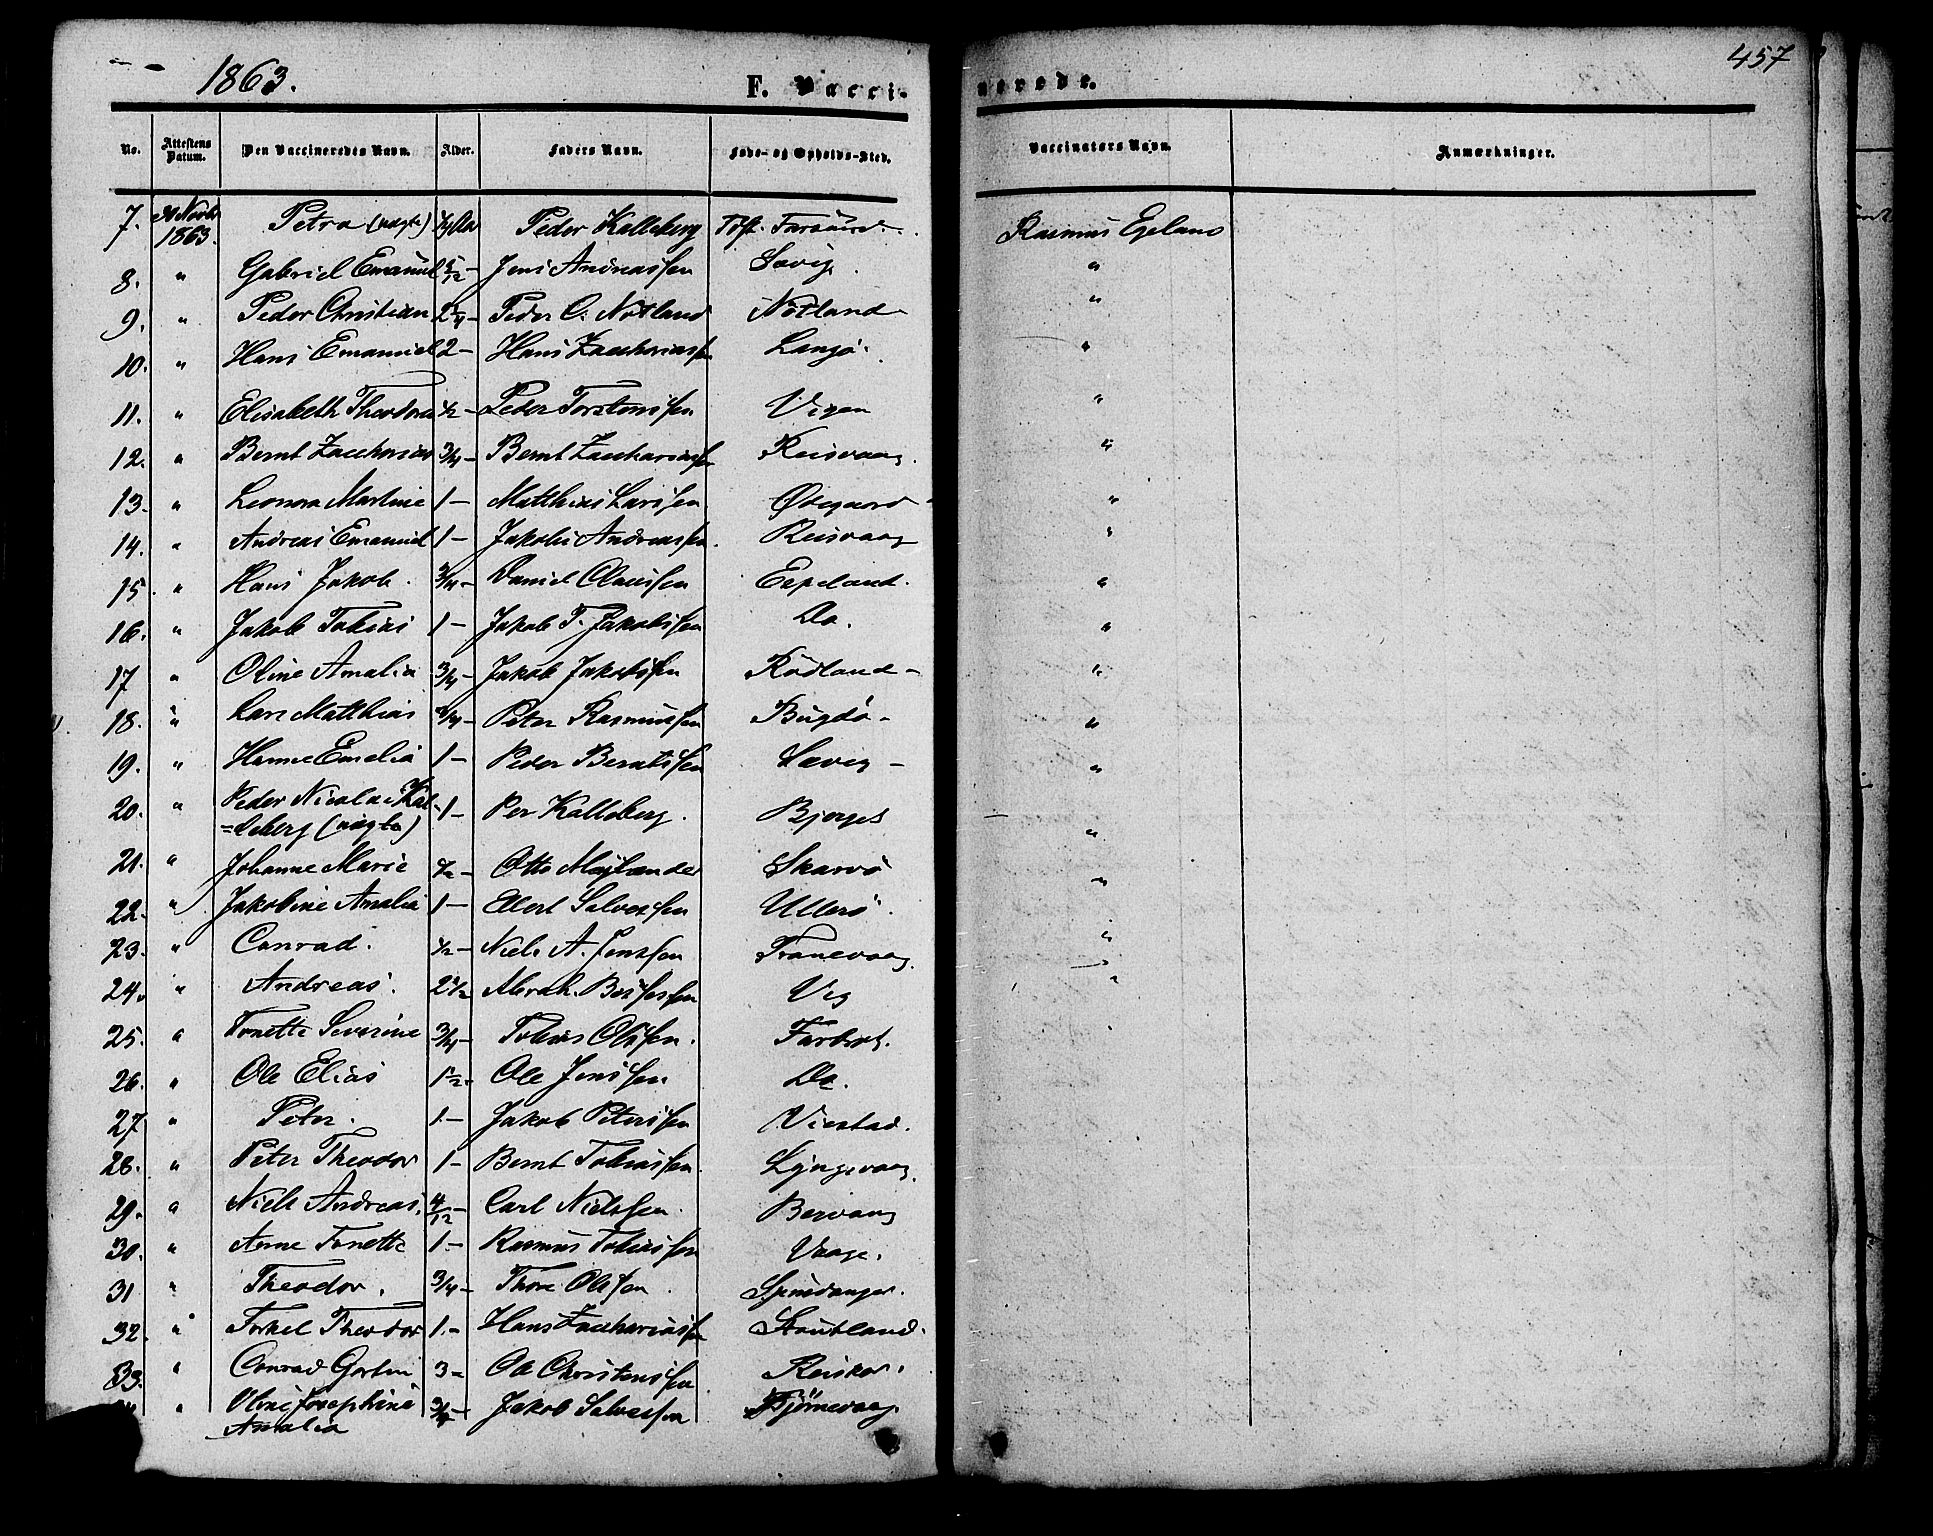 1863.
F. Vacci-
nerede.
457
No. Attestens Datum. Den Vaccineredes Navn. Alder. Faders Navn. Føde- og Opholds-Sted. Vaccinators Navn. Anmærkninger.
7. 1863. Petra (uægte) Peder Kalleberg Farsund Rasmus Egeland
8. " Gabriel Emanuel 5/12 - Jens Andreassen Lævig "
9. " Peder Christian 2 1/4 - Peder O. Nøtland Nøtland "
10. " Hans Emanuel 2 - Hans Zacchariassen Langø "
11. " Elisabeth Theodora 1/2 - Peder Torstenssen Vigen "
12. " Bernt Zaccharias 3/4 - Bernt Zacchariassen Reisvaag "
13. " Leonora Martine 1 - Matthias Larssen Østgaard "
14. " Andreas Emanuel 1 - Jakob Andreassen Reisvaag "
15. " Hans Jakob. 3/4 - Daniel Claussen Espeland. "
16. " Jakob Tobias 1 - Jakob T. Jakobssen Do. "
17 " Oline Amalia 3/4 - Jakob Jakobssen Rødland "
18. " Lars Matthias 3/4 - Peter Rasmussen Bugdø "
19. " Hanne Emelia 1 - Peder Berntssen Lævig "
20. " Peder Nicolai Kal-
=leberg (uægte) 1 - Per Kalleberg. Bjerges "
21. " Johanne Marie 1/2 - Otto Mejlænder Skarvø "
22. " Jakobine Amalia 1 - Ellert Salvessen Ullerø. "
23. " Conrad. 1/2 - Niels A. Jenssen Tranevaag. "
24. " Andreas. 2 1/2 Abrah. Vig "
25. " Tonette Severine 3/4 Tobias Olssen. Farbrot.
26. " Ole Elias 1 1/2 - Ole Jenssen Do.
27 " Peter. 1 - Jakob Peterssen Viestad.
28. " Peter Theodor 1 - Bernt Tobiassen. Lyngsvaag.
29. " Niels Andreas. 4/12 - Carl Nielssen. Bervaag
30. " Anne Tonette 1 - Rasmus Tobiassen Vaage.
31 " Theodor. 3/4 - Thore Olssen. Spindanger.
32. " Torkel Theodor 1 - Hans Zacchariassen Stoutland.
33. " Conrad 3 - Ole Christenssen Reisker.
" Oline Josephine
Amalia 3/4 - Jakob Salvessen Tjørnevaag.